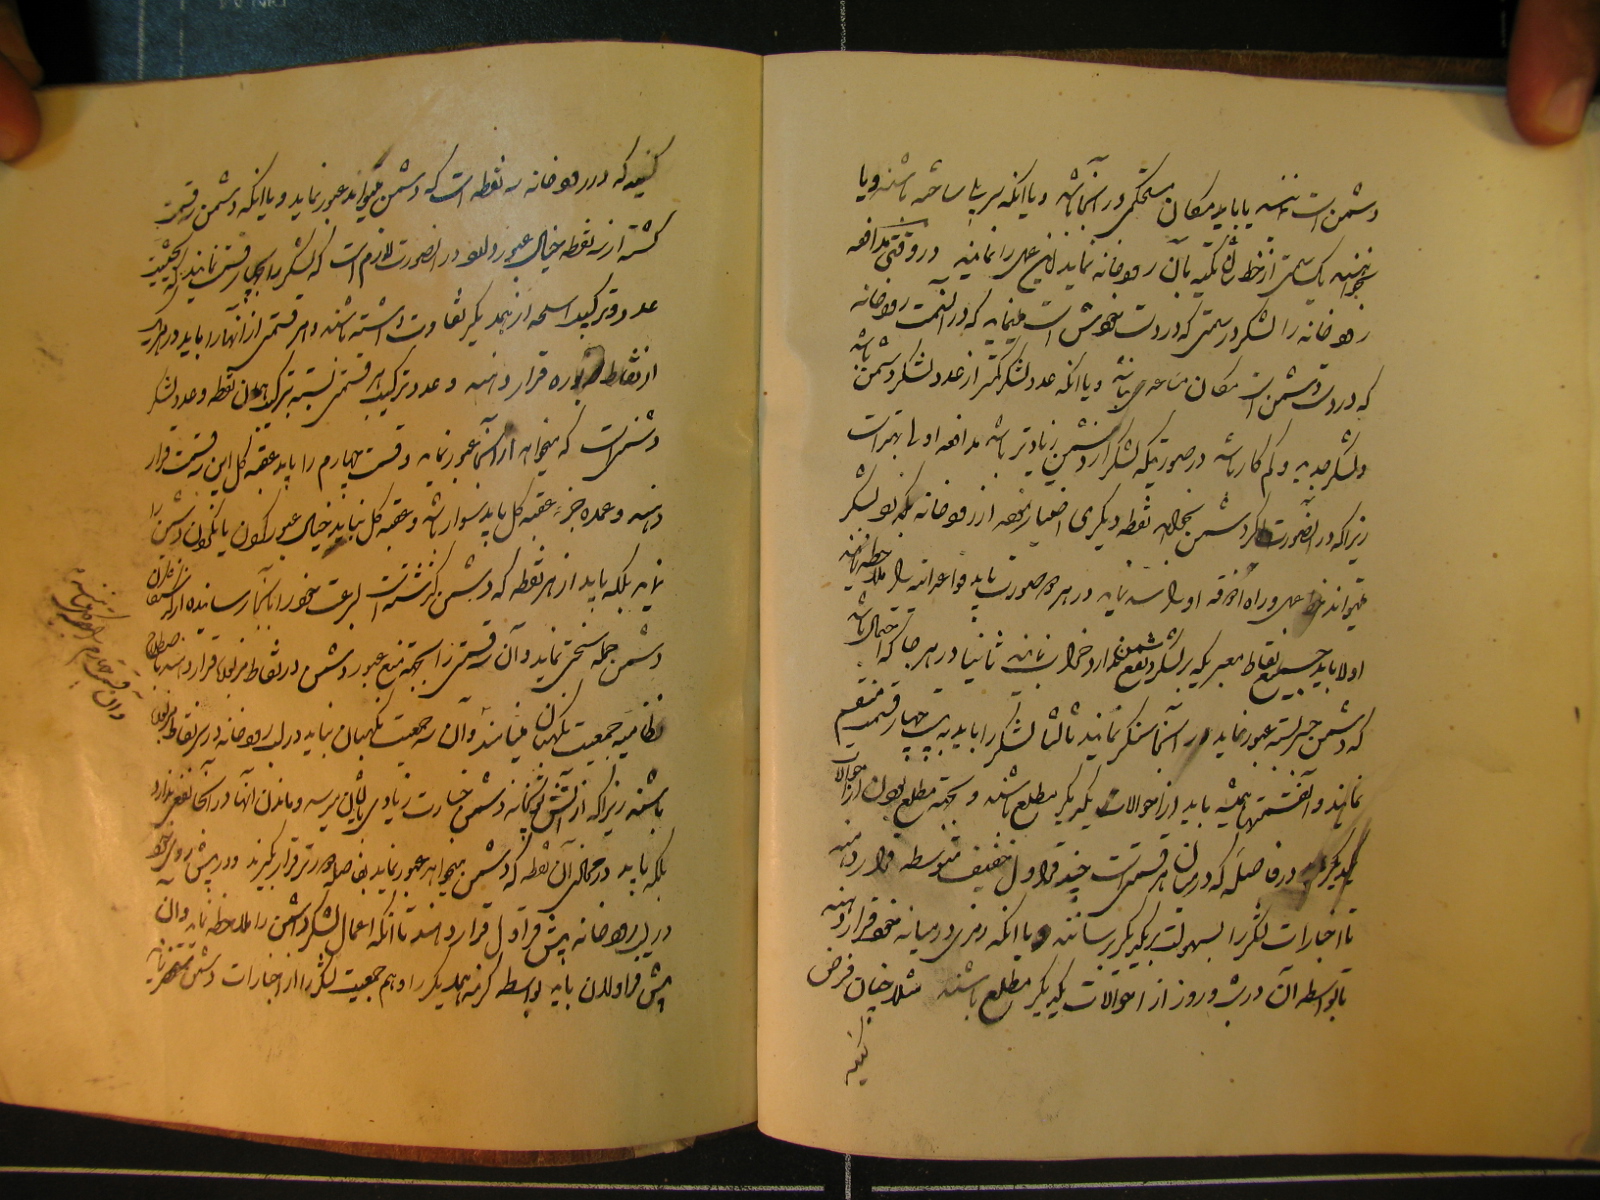 دشمن است نزنند یا باید مکان مستحکمی در آنجا باشد و یا آنکه سر پل ساخته باشند و یا
نخواهند یک سمتی از خط را تکیه بآن رودخانه نمایند این عمل را نمایند در وقتی مدافعه
رودخانه را لشکر در سمتی که در دست خودش است مینماید که در آن سمت رودخانه
که در دست دشمن است مکان مساعدی نباشد و یا آنکه عدد لشکر کمتر از عدد لشکر دشمن باشد
و لشکر جدید و کم کار باشد در صورتیکه لشکر از دشمن زیادتر باشد مدافعه اولی بهتر است
زیرا که در آن صورت اگر دشمن بخواهد نقطه دیگری اختیار نموده از رودخانه بگذرد لشکر
میتواند خط عمل و راه آذوقه او را سد نماید در هر دو صورت باید قواعد آتیه را ملاحظه نمایند
اولا باید جمیع نقاط معبر یکه بر لشکر دشمن نفع دارد خراب نمایند ثانیا در هر جا که احتمال باشد
که دشمن جرئت عبور نماید در آنجا سنگر نمایند ثالثا لشکر را باید به چهار قسمت منقسم
نمایند و آن قسمتها همیشه باید از احوالات یکدیگر مطلع باشند و بجهة مطلع بودن از احوالات
یکدیگر در فاصله که در میان هر قسمتی است چند قراول خفیف متوسطه قرار دهند
تا اخبارات لشکر را بسهولت بیکدیگر برسانند و یا آنکه رمزی در میانه خود قرار دهند
تا بواسطه آن در شب و روز از احوالات یکدیگر مطلع باشند مثلا چنان فرض
کنید
کنید که در رودخانه سه نقطه است که دشمن میتواند عبور نماید و یا آنکه دشمن سه قسمت
گشته از سه نقطه خیال عبور دارد در آن صورت لازم است که لشکر را بچهار قسمت نمایند بحیثیتی که
عدد و ترکیب اسلحه از همدیگر تفاوت داشته باشند و هر قسمتی از آنها را باید در هر یک
از نقاط مزبوره قرار دهند و عدد و ترکیب هر قسمتی نسبت بترکیب همان نقطه و عدد لشکر
دشمن است که میخواهد از آنجا عبور نماید و قسمت چهارم را باید عقبه کل این سه قسمت قرار
دهند و عمده جزء عقبه کل باید سوار باشد و عقبه کل نباید خیال عبور کردن یا نکردن دشمن را
نماید بلکه باید از هر نقطه که دشمن گذشته است بسرعت خود را بآنجا رسانیده از اطراف
دشمن حمله سختی نماید و آن سه قسمتی را بجهة منع عبور دشمن در نقاط مزبوره قرار دهند باصطلاح
نظامیه جمعیت نگهبان مینامند و آن سه جمعیت نگهبان نباید در لب رودخانه در سر نقاط مزبوره
باشند زیرا که از آتش توپخانه دشمن خسارت زیادی بایشان میرسد و ماندن آنها در آنجا نفعی ندارد
بلکه باید در محاذی آن نقطه که دشمن میخواهد عبور نماید بفاصله دورتر قرار بگیرند و در پیش روی خود
در لب رودخانه پیش قراول قرار دهند تا آنکه اعمال لشکر دشمن را ملاحظه نماید و آن
پیش قراولان باید بواسطه کرنه همدیگر را و هم جمعیت لشکر را از اخبارات دشمن مستحضر نمایند
و آن قسمت چهارم